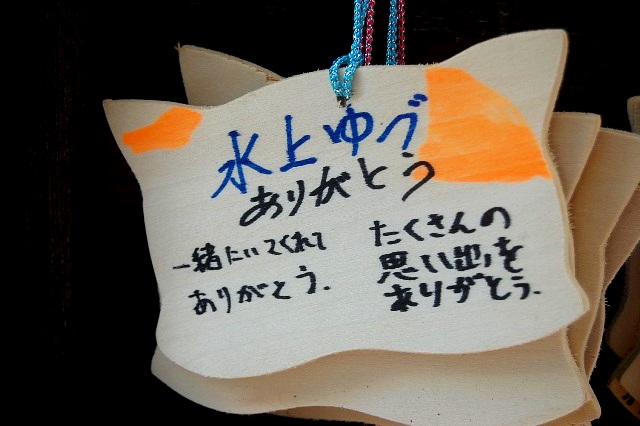 水上ゆづ
ありがとう
一緒にいてくれて
ありがとう.
たくさんの
思い出を
ありがとう.